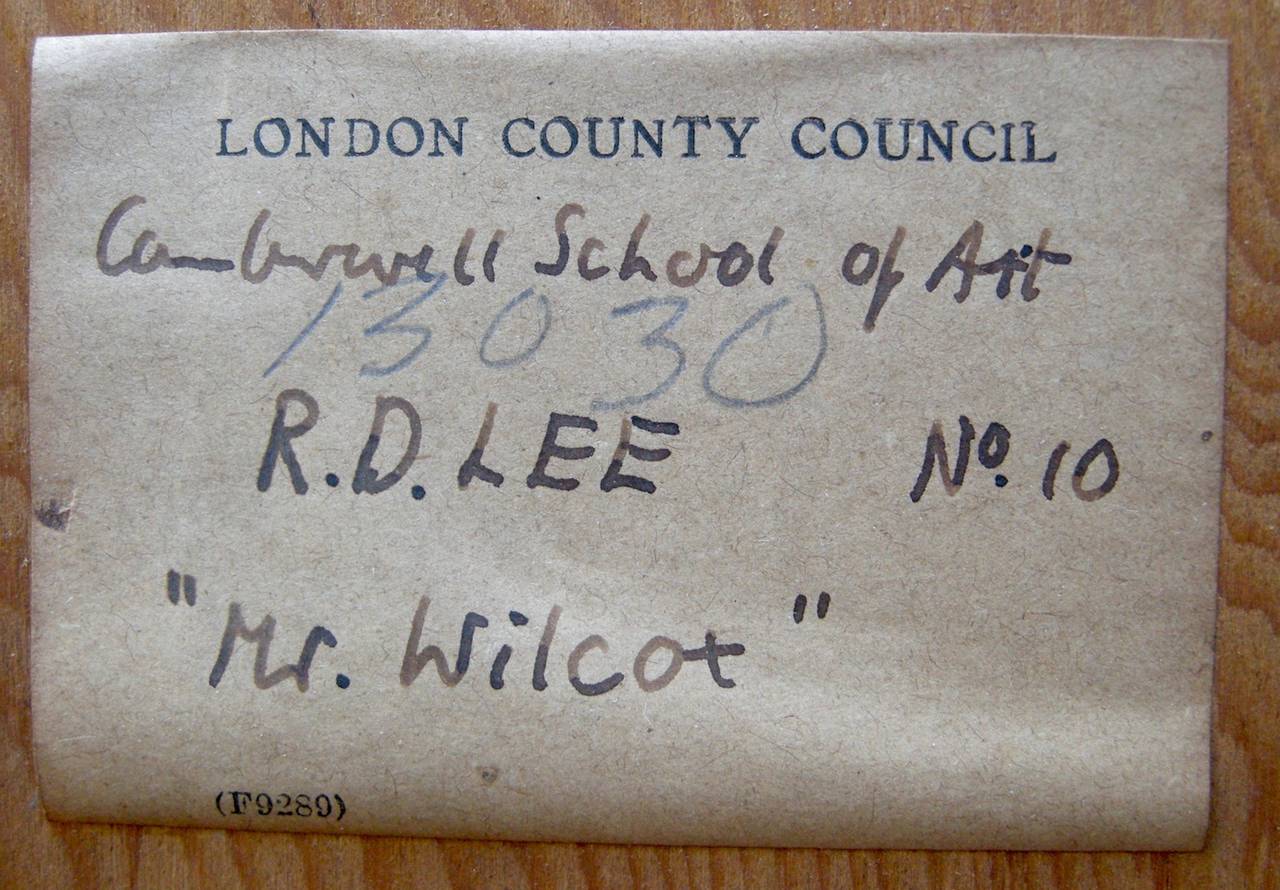 LONDON COUNTY COUNCIL
Camberwell School of Art
13030
R.D. LEE No. 10
"Mr. Wilcox"
(F9289)